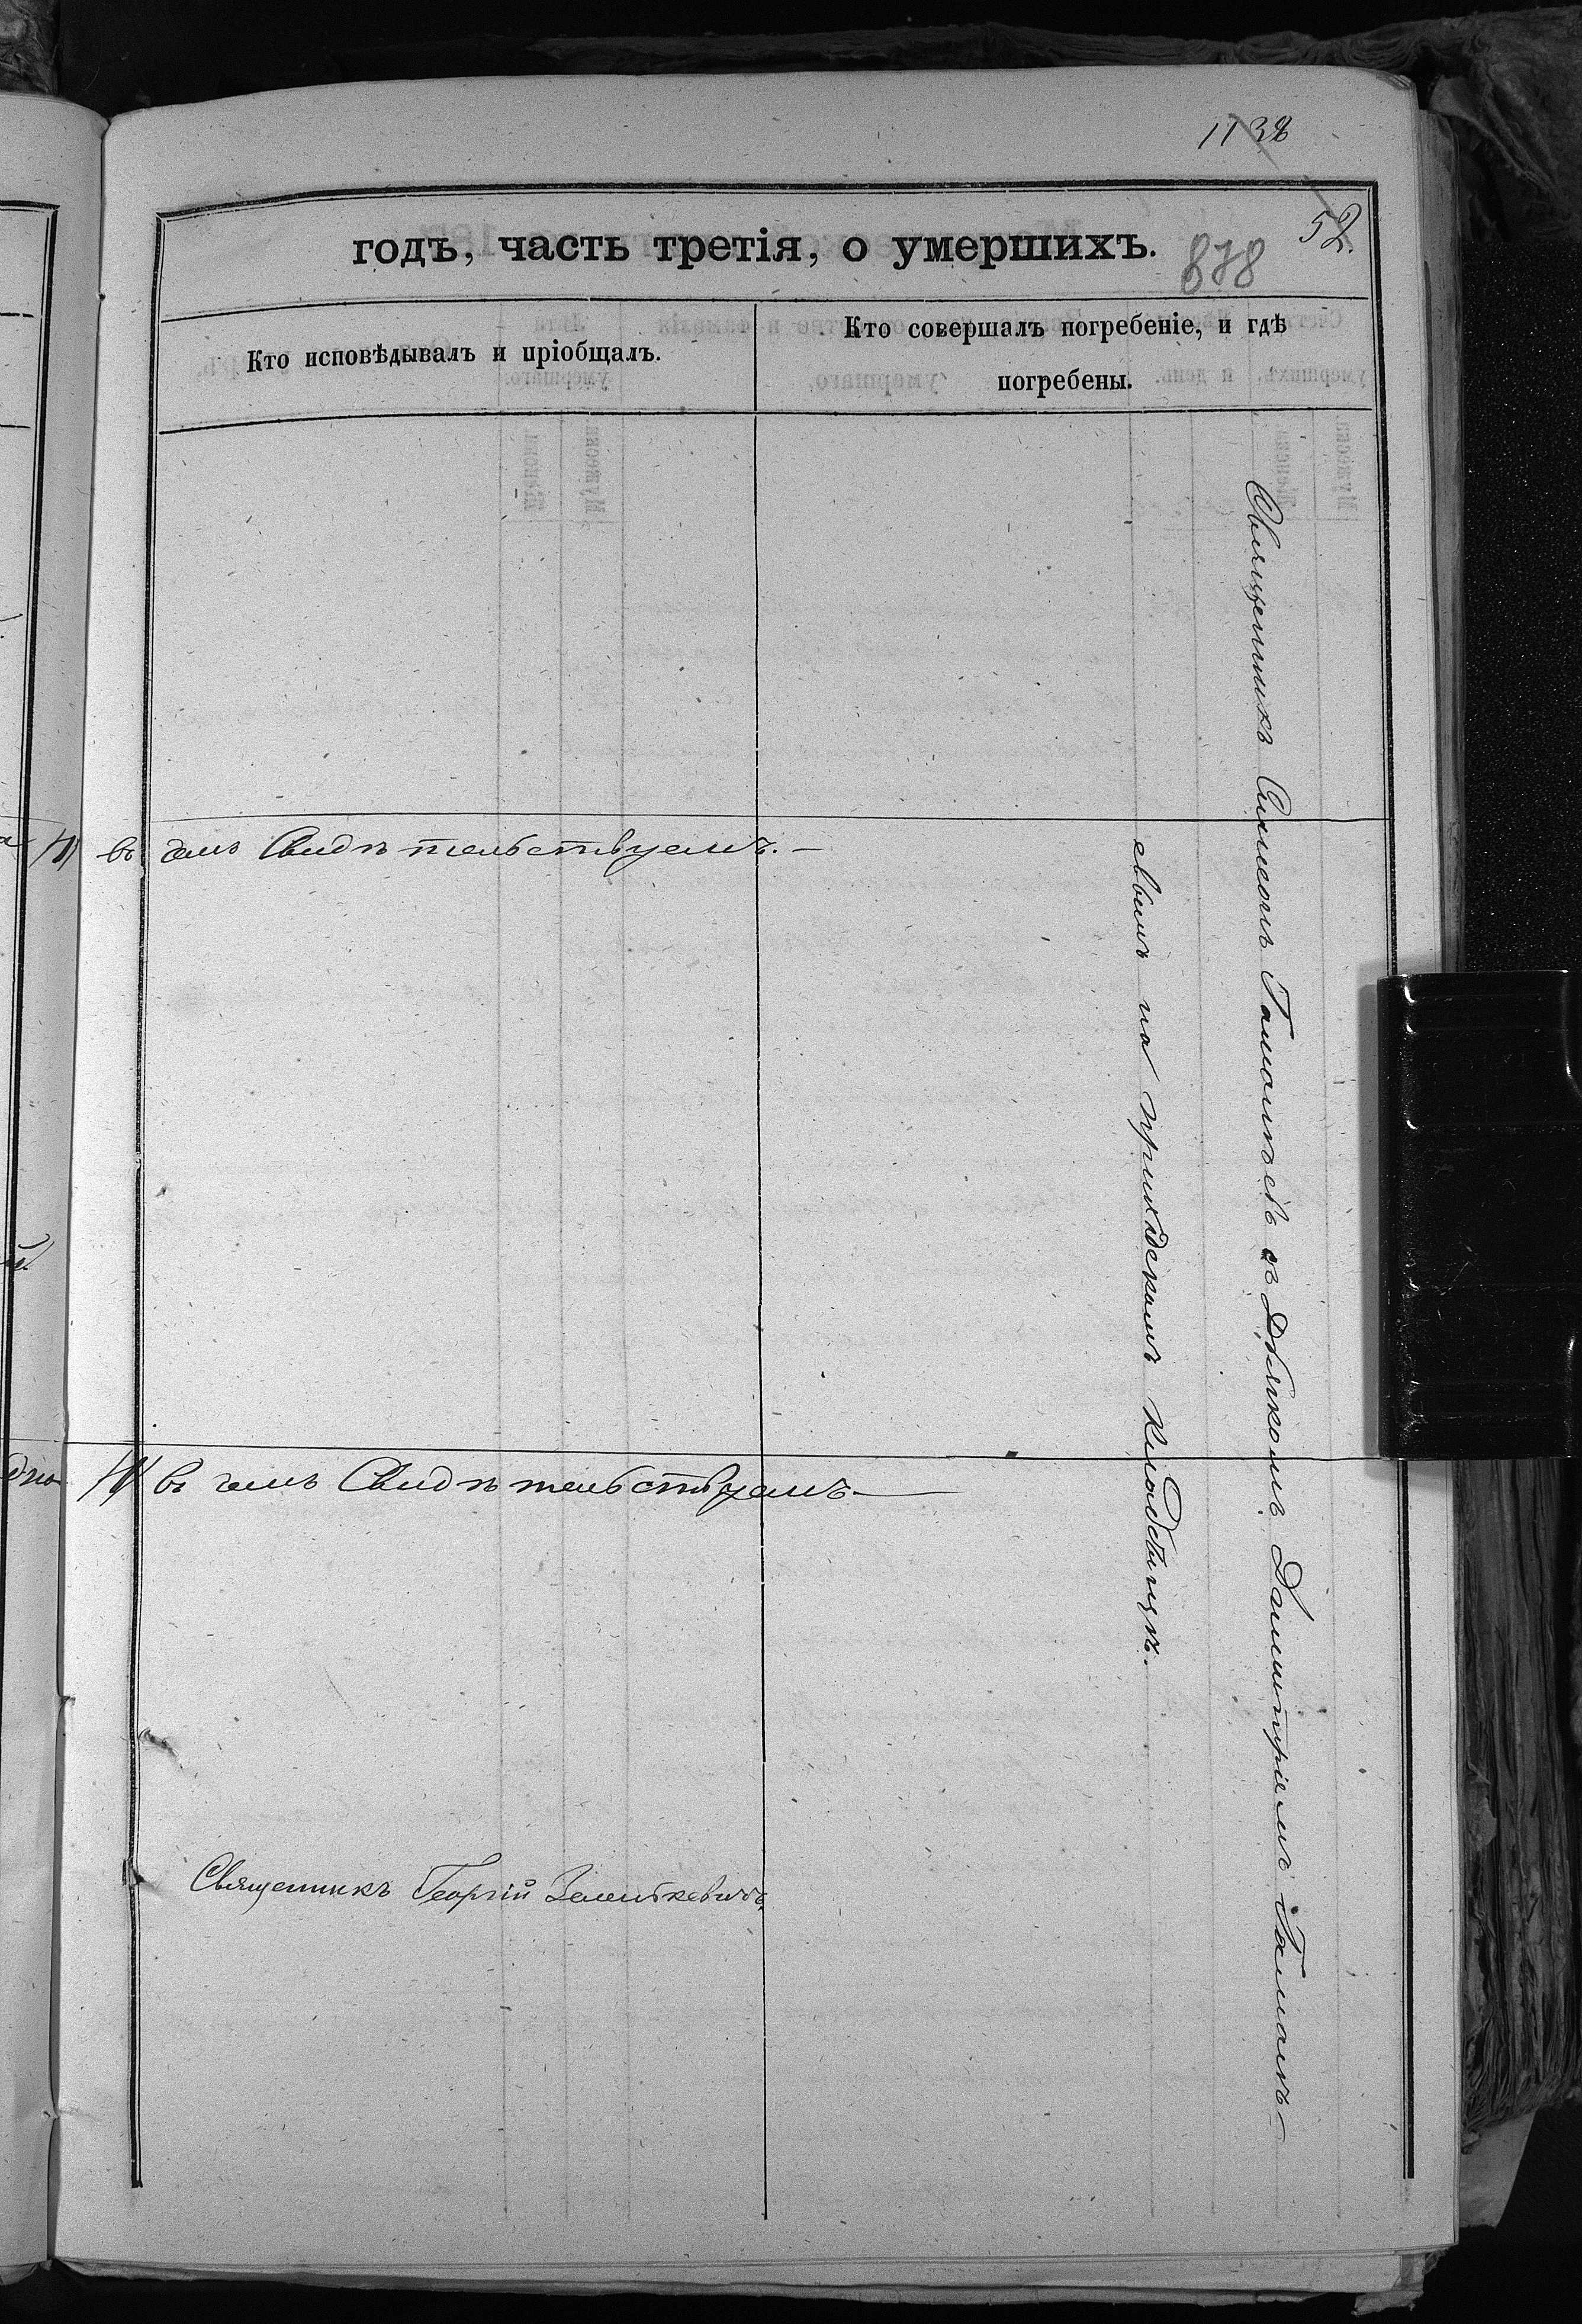 1138
52.
годъ, часть третія, о умершихъ.
878
Кто исповѣдывалъ и пріобщалъ.
Кто совершалъ погребеніе, и гдѣ
погребены.
Священникъ Симеонъ Гамолѣевъ съ Дьячкомъ Димитріемъ Гамолѣ-
евымъ на приходскомъ кладбищѣ.
въ чемъ Свидѣтельствуемъ. —
(4) въ чемъ Свидѣтельствуемъ —
Священникъ Георгій